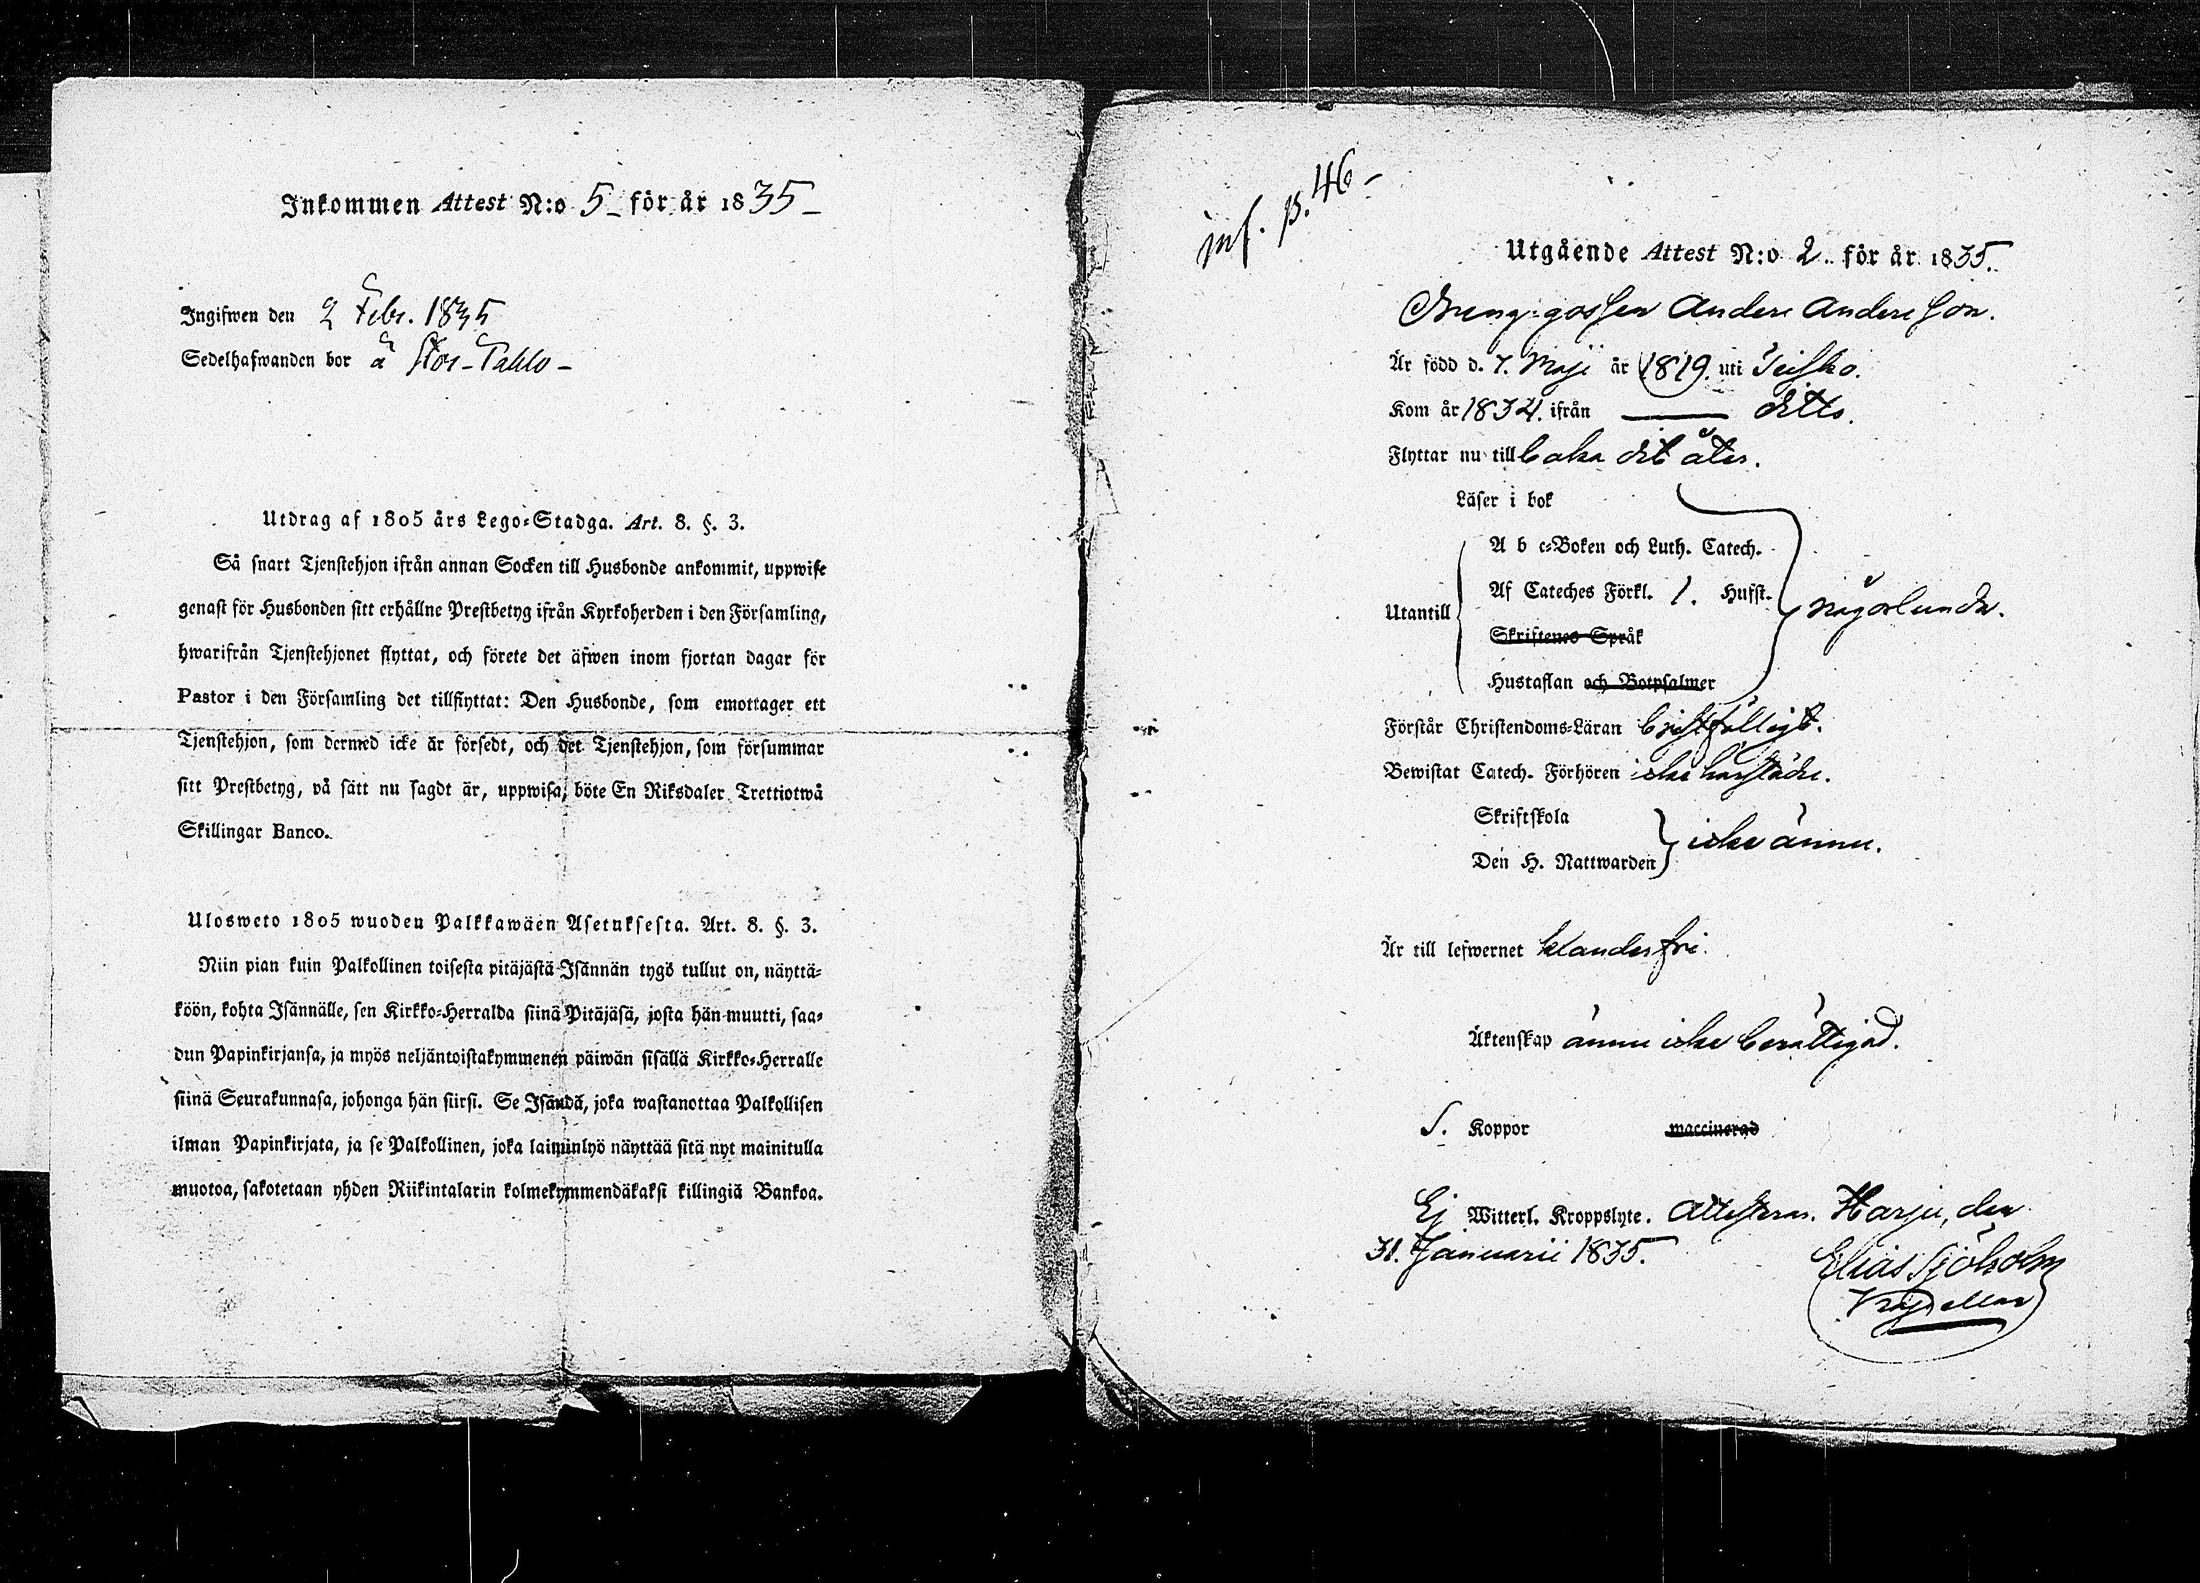 Inkommen Attest N:o 5 för år 1835
Ingifwen den 2 Febr. 1835
Sedelhafwanden bor å Stor-Pahlo
Utdrag af 1805 års Lego-Stadga. Art. 8. §. 3.
Så snart Tjenstehjon ifrån annan Socken till Husbonde ankommit, uppwise
genast för Husbonden sitt erhållne Prestbetyg ifrån Kyrkoherden i den Församling,
hwarifrån Tjenstehjonet flyttat, och förete det äfwen inom fjortan dagar för
Pastor i den Församling det tillflyttat: Den Husbonde, som emottager ett
Tjenstehjon, som dermed icke är försedt, och det Tjenstehjon, som försummar
sitt Prestbetyg, på sätt nu sagdt är, uppwisa, böte En Riksdaler Trettiotwå
Skillingar Banco.
Ulosweto 1805 wuoden Palkkawäen Asetuksesta. Art. 8. §. 3.
Niin pian kuin Palkollinen toisesta pitäjästä Isännän tygö tullut on, näyttä-
köön, kohta Isännälle, sen Kirkko-Herralda siinä Pitäjäsä, josta hän muutti, saa-
dun Papinkirjansa, ja myös neljäntoistakymmenen päiwän sisällä Kirkko-Herralle
siinä Seurakunnasa, johonga hän siirsi. Se Isändä, joka wastanottaa Palkollisen
ilman Papinkirjata, ja se Palkollinen, joka laiminlyö näyttää sitä nyt mainitulla
muotoa, sakotetaan yhden Riikintalarin kolmekymmendäkaksi killingiä Bankoa.
inf. p. 46
Utgående Attest N:o 2. för år 1835.
Drenggossen Anders Andersson.
Är född d. 7. Maji år 1819. uti Teisko.
Kom år 1834. ifrån ditto.
Flyttar nu tillbaka dit åter.
Läser i bok
A b c-Boken och Luth. Catech.
Utantill Af Cateches Förkl. 1. Hufst. någorlunda.
Skriftenes Språk
Hustaflan och Botpsalmer
Förstår Christendoms-Läran bristfälligt.
Bewistat Catech. Förhören icke härstädes.
Skriftskola
Den H. Nattwarden icke ännu.
Är till lefwernet klanderfri.
Äktenskap ännu icke berättigad.
Koppor waccinerad
Ej Witterl. Kroppslyte. Attesteras. Harju, den
31. Januarii 1835.
Elias Sjöholm
Kapellan